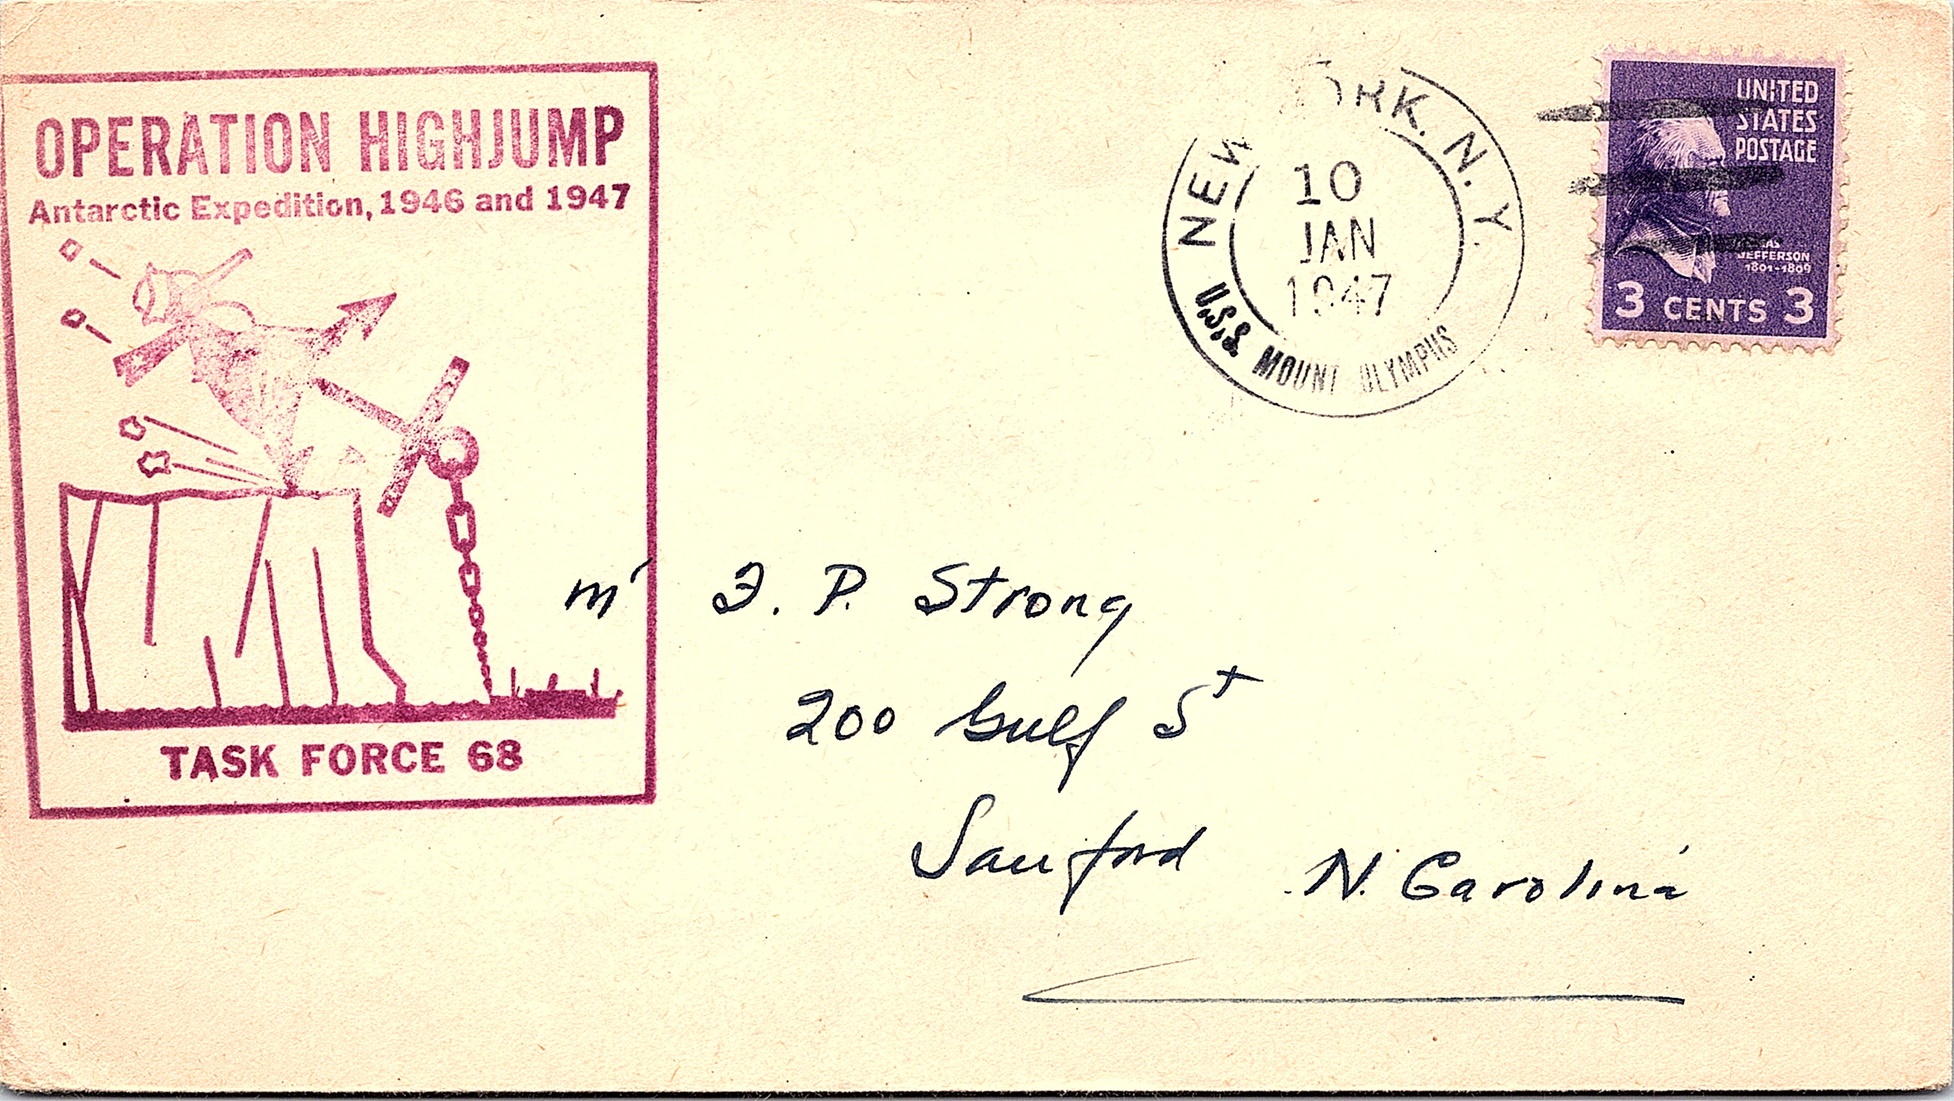 OPERATION HIGHJUMP
Antarctic Expedition, 1946 and 1947
TASK FORCE 68
NEW YORK. N.Y.
10
JAN
1947
U.S.S. MOUNT OLYMPUS
UNITED
STATES
POSTAGE
JEFFERSON
1801-1809
3 CENTS 3
Mr P. Strong
200 Gulf St
Sanford N. Carolina